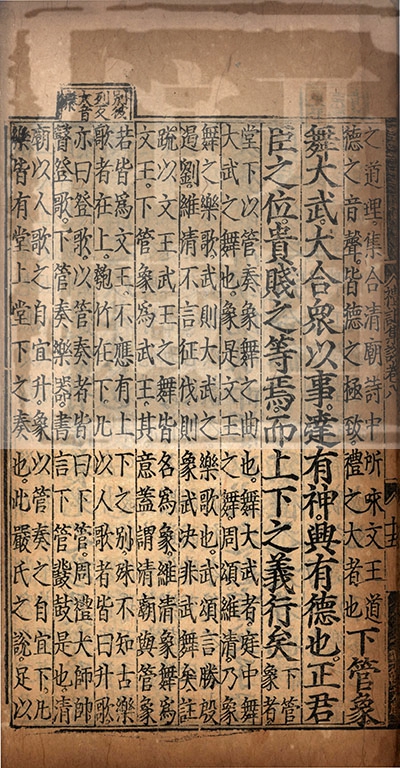 之道理集合清廟詩中所咏文王道
德之音聲皆德之極致禮之大者也
下管象
舞大武大合衆以事達有神興有德也正君
臣之位貴賤之等焉而上下之義行矣
下管
象者
堂下以管奏象舞之曲也舞大武者庭中舞
大武之舞也象是文王之舞周頌維清乃象
舞之樂歌武則大武之樂歌也武頌言勝殷
遏劉維清不言征伐則象武決非武舞矣註
疏以文王武王之舞皆名爲象維清象舞爲
文王下管象爲武王其意蓋謂清廟與管象
若皆爲文王不應有上下之別殊不知古樂
歌者在上匏竹在下凡以人歌者皆曰升歌
亦曰登歌以管奏者皆曰下管周禮大師帥
瞽登歌下管奏樂器書言下管鼗鼓是也清
廟以人歌之自宜升象以管奏之自宜下凡
樂皆有堂上堂下之奏也此嚴氏之說足以